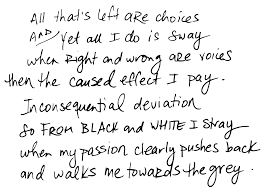 All that's left are choices
AND yet all I do is sway
when Right and wrong are voices
then the caused effect I pay.
Inconsequential deviation
So FROM BLACK and WHITE I Stray
when my passion clearly pushes back
and walks me towards the grey.